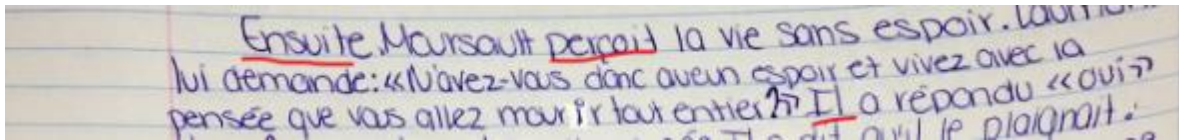 Ensuite, Moursault perçoit la vie sans espoir. L'aumon
lui demande: «N'avez-vous donc aucun espoir et vivez avec la
pensée que vous allez mourir tout entier?» Il a répondu «oui»
Il a dit qu'il le plaignait.